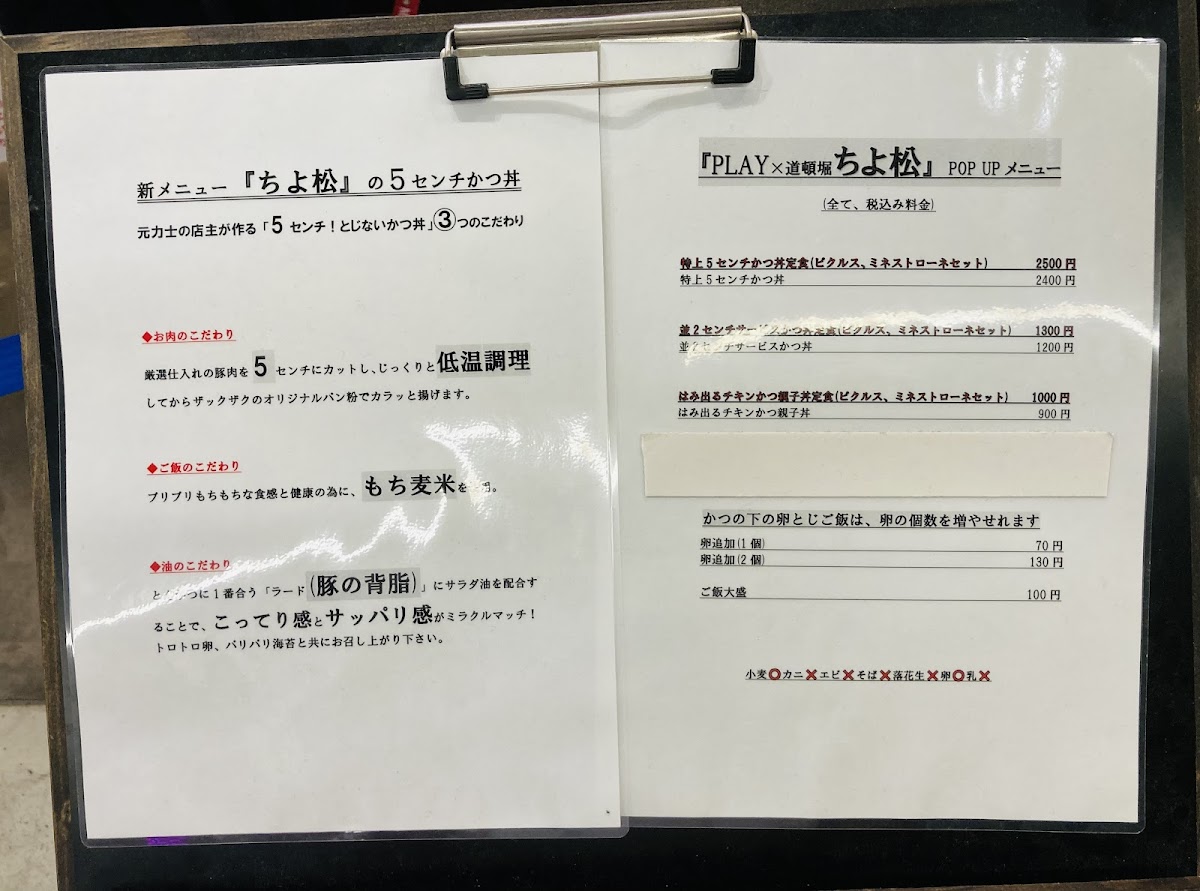 新メニュー『ちよ松』の5センチかつ丼
元力士の店主が作る「5 センチ!とじないかつ丼」③つのこだわり
◆お肉のこだわり
厳選仕入れの豚肉を 5 センチにカットし、じっくりと低温調理
してからザックザクのオリジナルパン粉でカラッと揚げます。
◆ご飯のこだわり
プリプリもちもちな食感と健康の為に、もち麦米を 用。
◆油のこだわり
とんかつに1番合う「ラード(豚の背脂)」にサラダ油を配合す
ることで、こってり感とサッパリ感がミラクルマッチ!
トロトロ卵、パリパリ海苔と共にお召し上がり下さい。
『PLAY×道頓堀ちよ松』 POP UP メニュー
(全て、税込み料金)
特上5センチかつ丼定食(ピクルス、ミネストローネセット) 2500 円
特上5センチかつ丼 2400 円
並2センチサービスかつ丼定食(ピクルス、ミネストローネセット) 1300 円
並2センチサービスかつ丼 1200 円
はみ出るチキンかつ親子丼定食(ピクルス、ミネストローネセット) 1000 円
はみ出るチキンかつ親子丼 900 円
かつの下の卵とじご飯は、卵の個数を増やせれます
卵追加(1個) 70 円
卵追加(2個) 130 円
ご飯大盛 100 円
小麦⭕カニ❌エビ❌そば❌落花生❌卵⭕乳❌